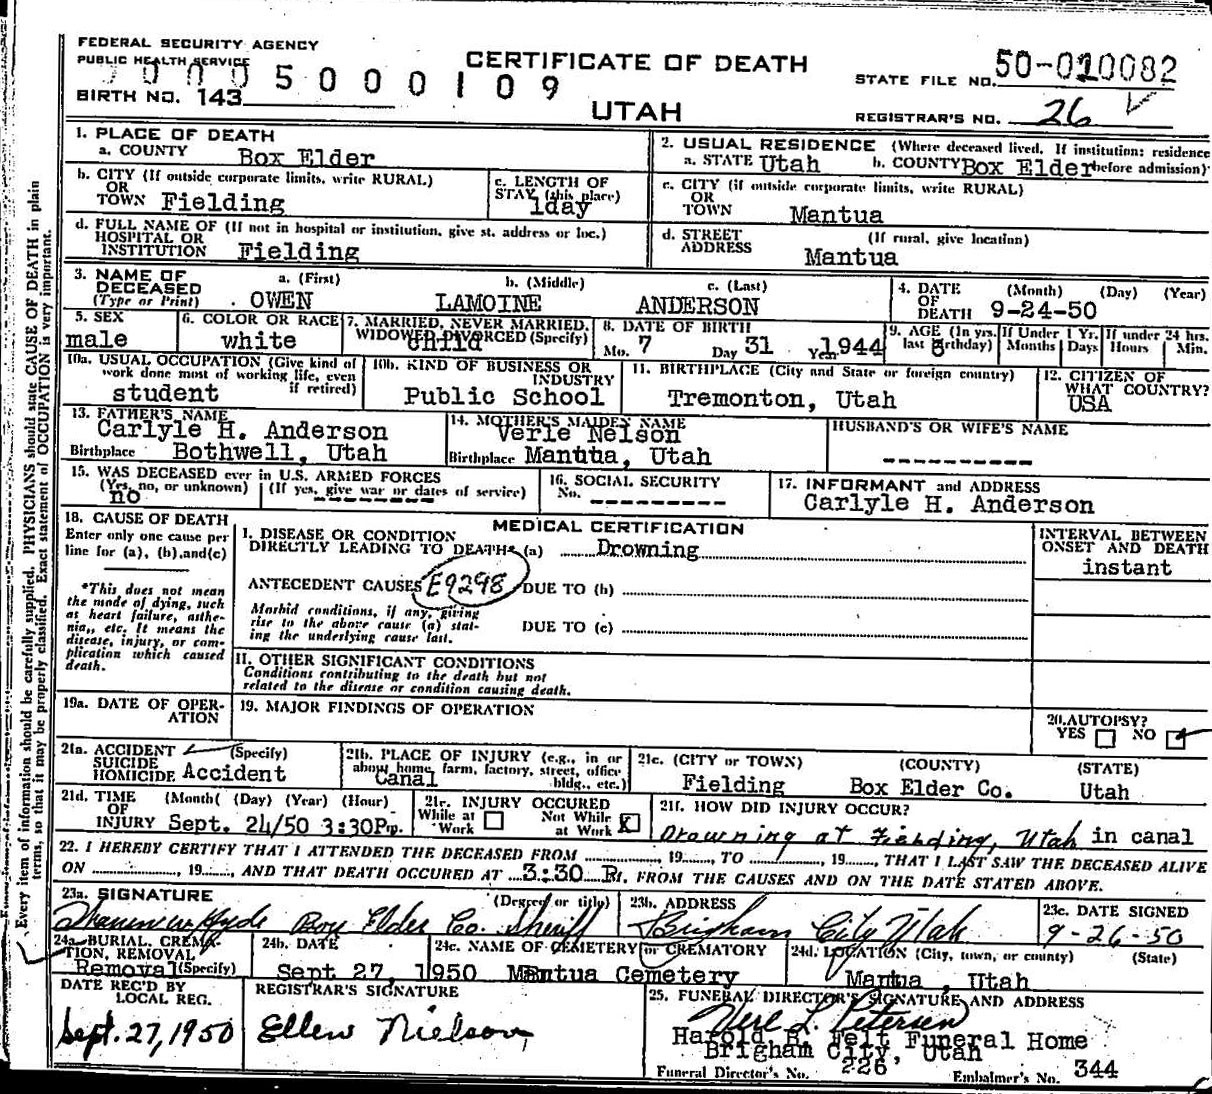 FEDERAL SECURITY AGENCY
PUBLIC HEALTH SERVICE
CERTIFICATE OF DEATH
STATE FILE NO. 50-010082
0005000109
BIRTH NO. 143
UTAH
REGISTRAR'S NO. 26
1. PLACE OF DEATH
a. COUNTY Box Elder
2. USUAL RESIDENCE (Where deceased lived. If institution: residence before admission)
a. STATE Utah b. COUNTY Box Elder
b. CITY (If outside corporate limits, write RURAL)
OR
TOWN Fielding
c. LENGTH OF
STAY (this place)
1day
c. CITY (if outside corporate limits, write RURAL)
OR
TOWN Mantua
d. FULL NAME OF (If not in hospital or institution, give st. address or loc.)
HOSPITAL OR
INSTITUTION Fielding
d. STREET (If rural, give location)
ADDRESS Mantua
3. NAME OF
DECEASED
(Type or Print)
a. (First) b. (Middle) c. (Last)
OWEN LAMOINE ANDERSON
4. DATE (Month) (Day) (Year)
OF
DEATH 9-24-50
5. SEX
male
6. COLOR OR RACE
white
7. MARRIED, NEVER MARRIED,
WIDOWED, DIVORCED (Specify)
Child
8. DATE OF BIRTH
Mo. 7 Day 31 Year 1944
9. AGE (In yrs. last birthday)
6
If Under 1 Yr.
Months Days
If under 24 hrs.
Hours Min.
10a. USUAL OCCUPATION (Give kind of
work done most of working life, even
if retired)
student
10b. KIND OF BUSINESS OR
INDUSTRY
Public School
11. BIRTHPLACE (City and State or foreign country)
Tremonton, Utah
12. CITIZEN OF
WHAT COUNTRY?
USA
13. FATHER'S NAME
Carlyle H. Anderson
Birthplace Bothwell, Utah
14. MOTHER'S MAIDEN NAME
Verle Nelson
Birthplace Mantua, Utah
HUSBAND'S OR WIFE'S NAME
----------
15. WAS DECEASED ever in U.S. ARMED FORCES
(Yes, no, or unknown) (If yes, give war or dates of service)
no --------
16. SOCIAL SECURITY
No. --------
17. INFORMANT and ADDRESS
Carlyle H. Anderson
18. CAUSE OF DEATH
Enter only one cause per
line for (a), (b), and (c)
*This does not mean
the mode of dying, such
as heart failure, asthe-
nia, etc. It means the
disease, injury, or com-
plication which caused
death.
MEDICAL CERTIFICATION
I. DISEASE OR CONDITION
DIRECTLY LEADING TO DEATH* (a) Drowning
INTERVAL BETWEEN
ONSET AND DEATH
instant
ANTECEDENT CAUSES E9298 DUE TO (b)
Morbid conditions, if any, giving
rise to the above cause (a) stat-
ing the underlying cause last.
DUE TO (c)
II. OTHER SIGNIFICANT CONDITIONS
Conditions contributing to the death but not
related to the disease or condition causing death.
19a. DATE OF OPER-
ATION
19. MAJOR FINDINGS OF OPERATION
20. AUTOPSY?
YES NO
21a. ACCIDENT (Specify)
SUICIDE
HOMICIDE Accident
21b. PLACE OF INJURY (e.g., in or
about home, farm, factory, street, office
bldg., etc.)
Canal
21c. (CITY or TOWN) (COUNTY) (STATE)
Fielding Box Elder Co. Utah
21d. TIME (Month) (Day) (Year) (Hour)
OF
INJURY Sept. 24/50 3:30P.m.
21e. INJURY OCCURED
While at Work Not While at Work X
21f. HOW DID INJURY OCCUR?
Drowning at Fielding, Utah in canal
22. I HEREBY CERTIFY THAT I ATTENDED THE DECEASED FROM ............, 19......, TO ............, 19......, THAT I LAST SAW THE DECEASED ALIVE
ON ............, 19......, AND THAT DEATH OCCURED AT 3:30 P.M. FROM THE CAUSES AND ON THE DATE STATED ABOVE.
23a. SIGNATURE (Degree or title)
Hyde Box Elder Co. Sheriff
23b. ADDRESS
Brigham City Utah
23c. DATE SIGNED
9-26-50
24a. BURIAL, CREMA-
TION, REMOVAL
Removal (Specify)
24b. DATE
Sept 27, 1950
24c. NAME OF CEMETERY or CREMATORY
Mantua Cemetery
24d. LOCATION (City, town, or county) (State)
Mantua, Utah
DATE REC'D BY
LOCAL REG.
Sept. 27, 1950
REGISTRAR'S SIGNATURE
Ellen Nielson
25. FUNERAL DIRECTOR'S SIGNATURE AND ADDRESS
Verl L. Petersen
Harold B. Felt Funeral Home
Brigham City, Utah
Funeral Director's No. 226 Embalmer's No. 344
Every item of information should be carefully supplied. PHYSICIANS should state CAUSE OF DEATH in plain
terms, so that it may be properly classified. Exact statement of OCCUPATION is very important.